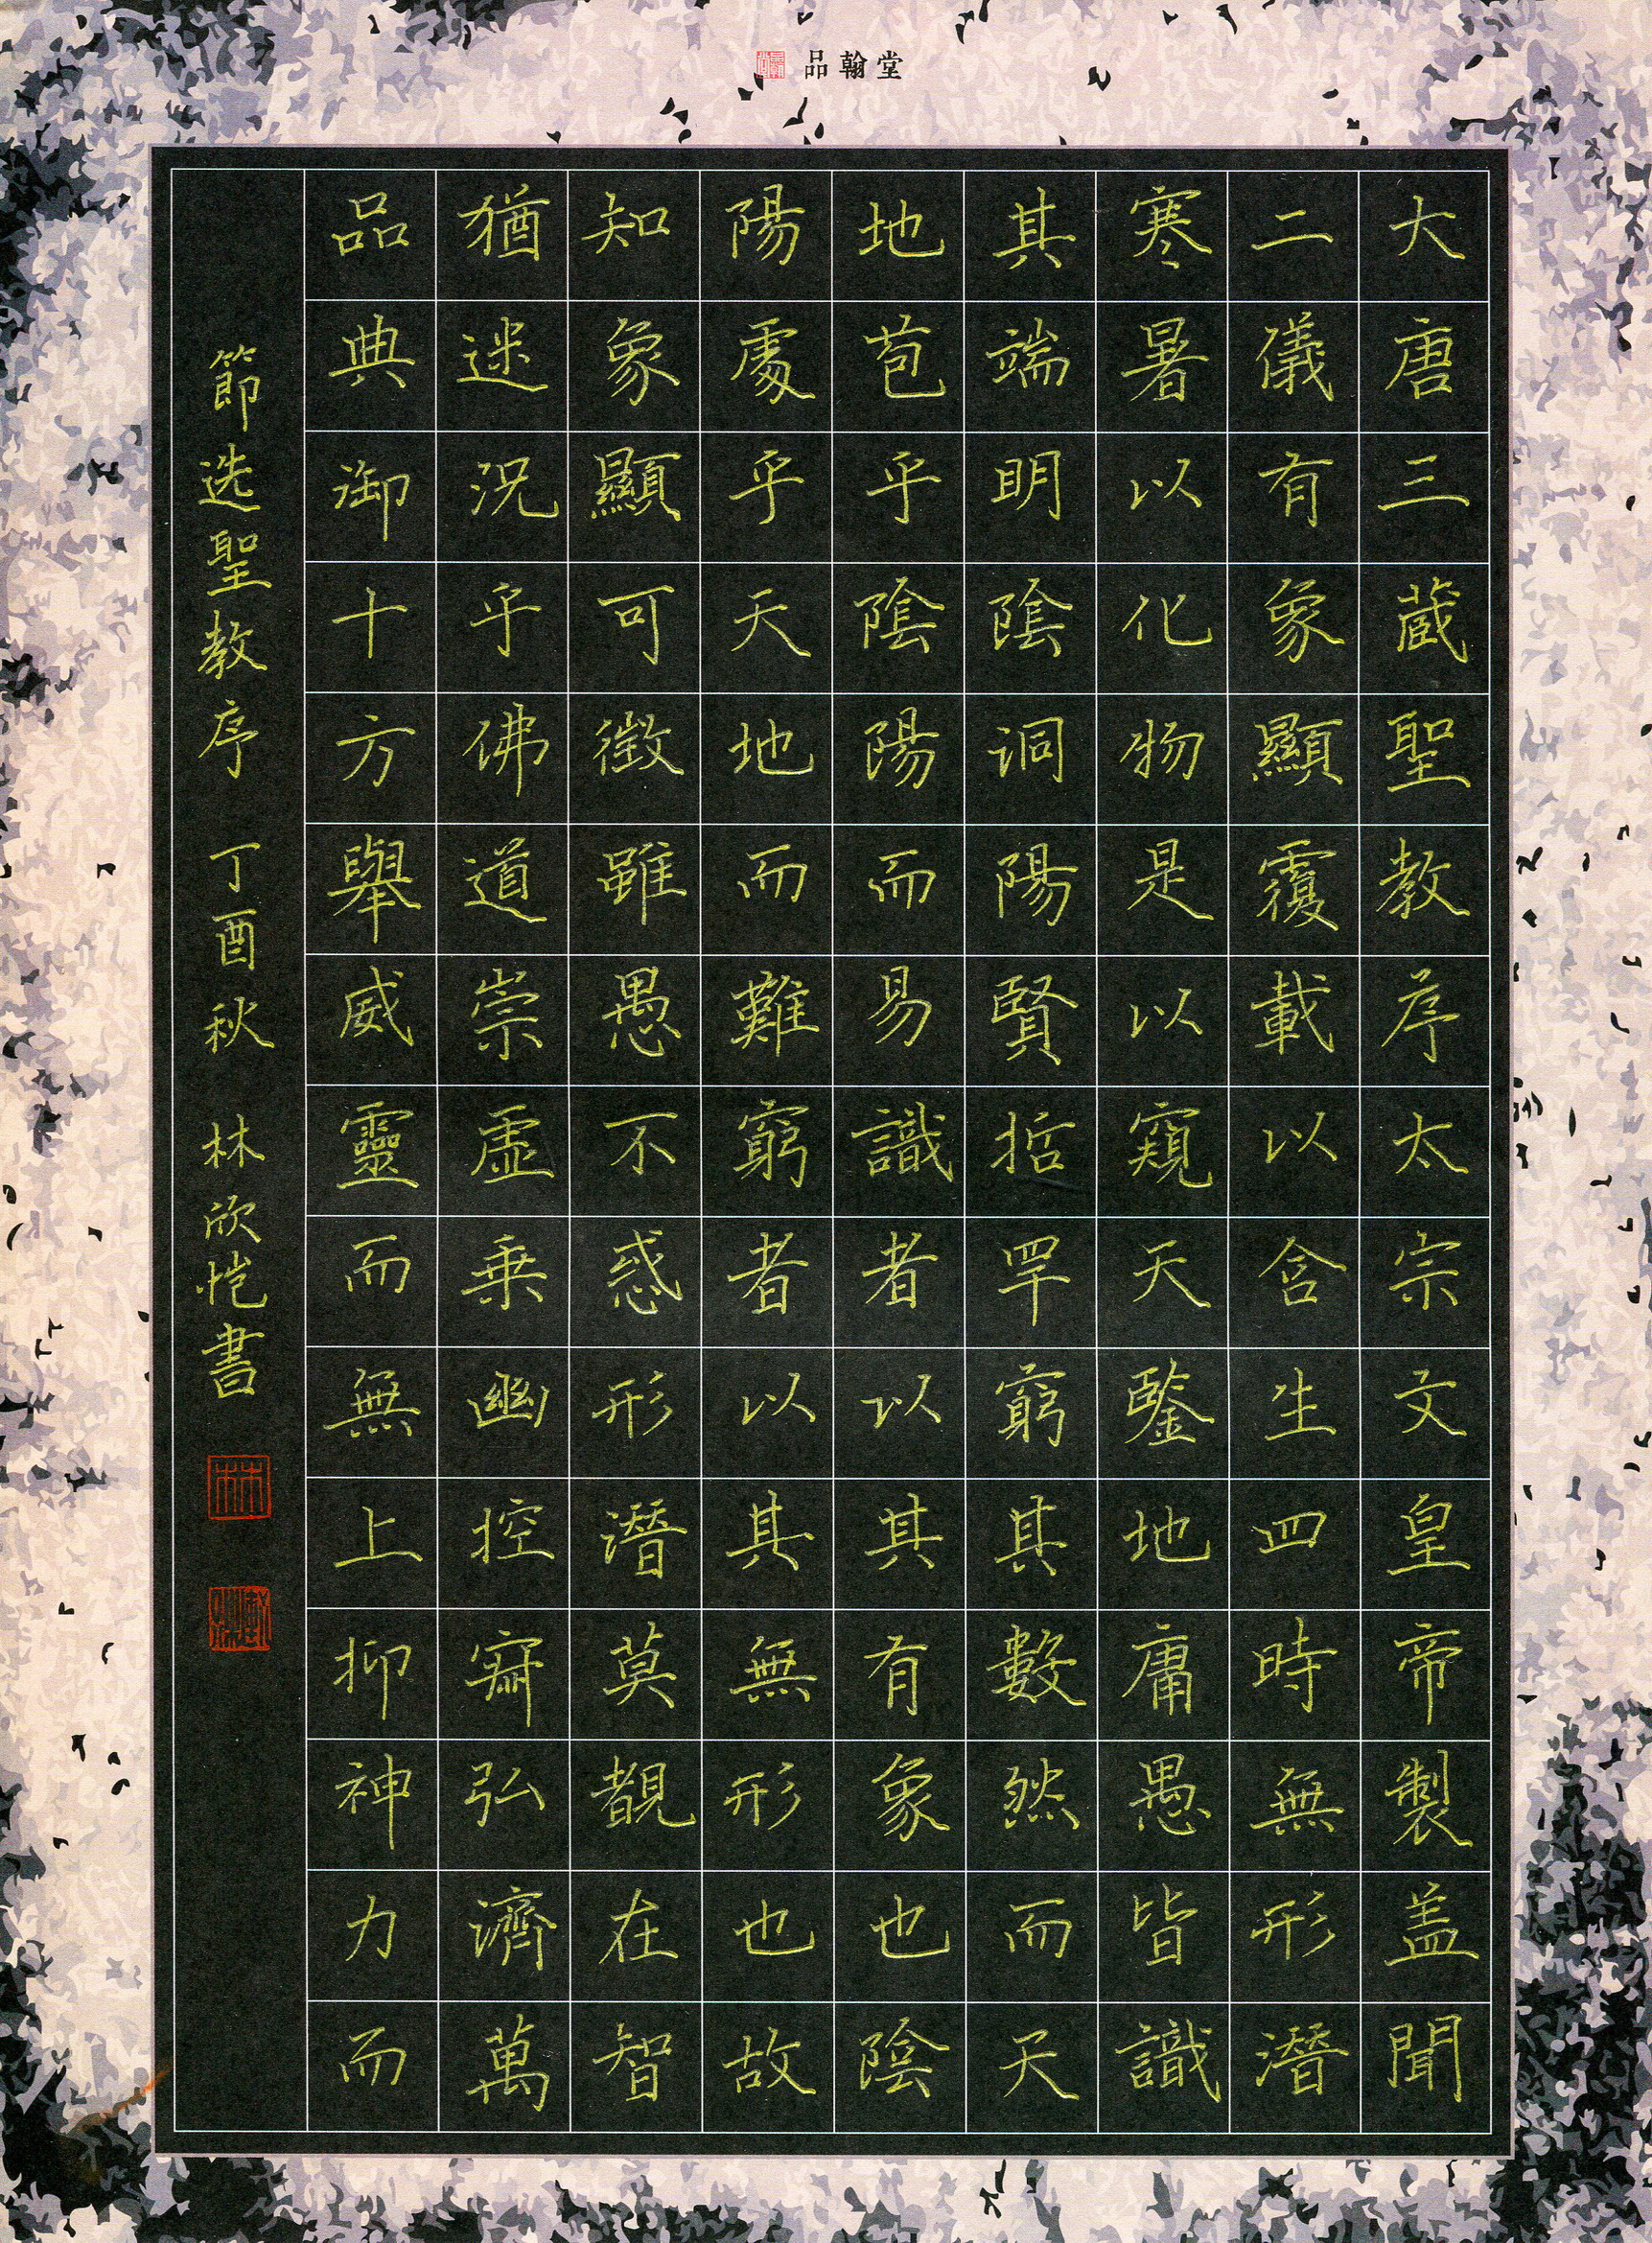 品翰堂
大唐三蔵聖教序太宗文皇帝製盖聞
二儀有象顯覆載以含生四時無形潛
寒暑以化物是以窺天鑒地庸愚皆識
其端明陰洞陽賢哲罕窮其數然而天
地苞乎陰陽而易識者以其有象也陰
陽處乎天地而難窮者以其無形也故
知象顯可徵雖愚不惑形潛莫覩在智
猶迷況乎佛道崇虛乗幽控寂弘濟萬
品典御十方舉威靈而無上抑神力而
節选聖教序 丁酉秋 林欣恺書
林